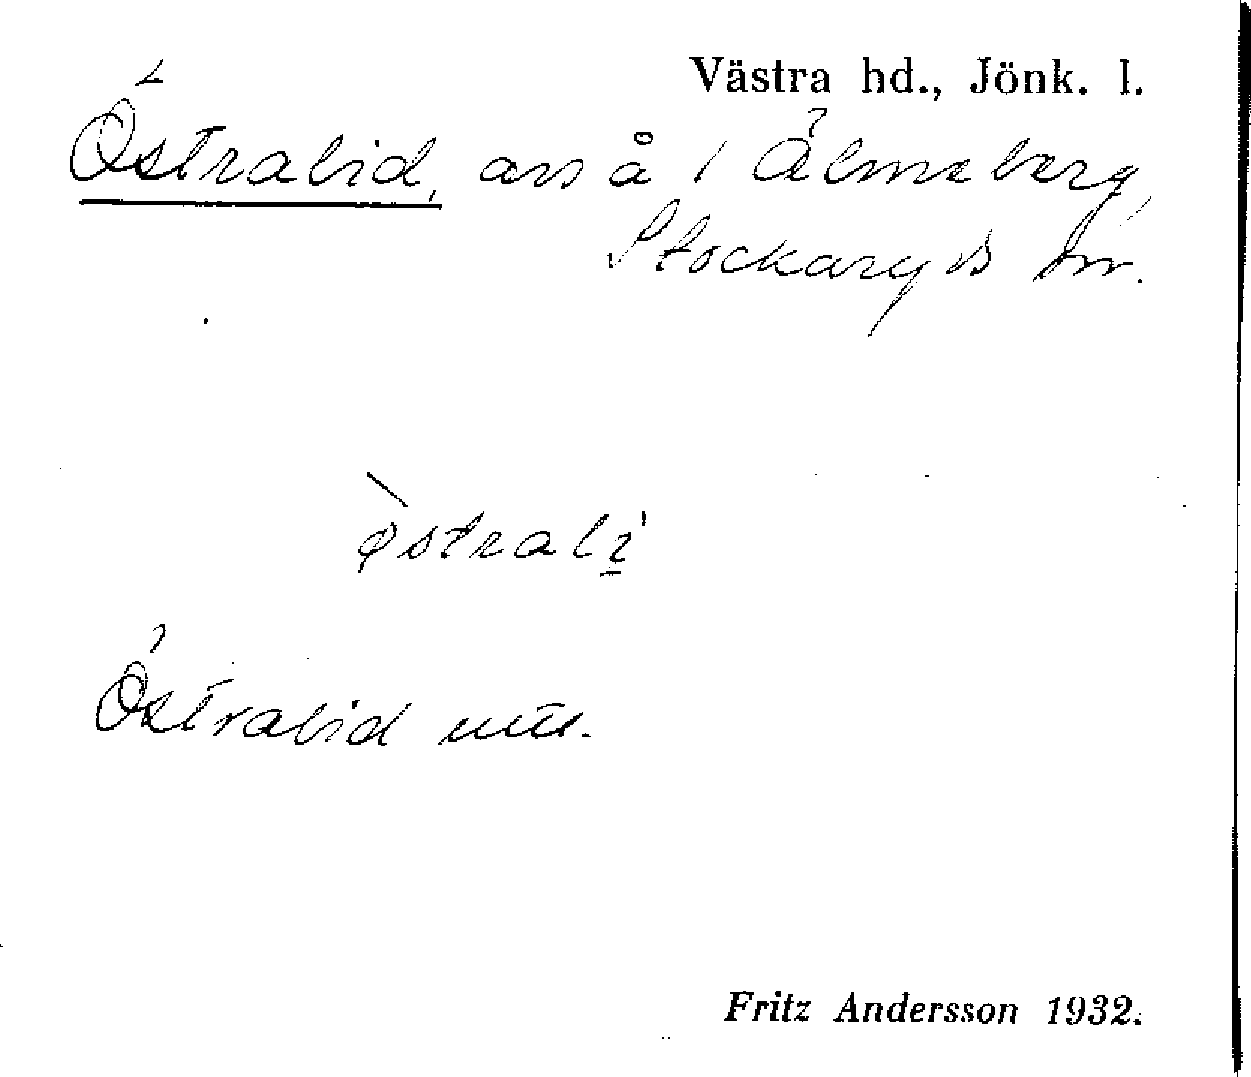 Västra hd., Jönk. l.
Östralid, avs å / Älmeberg,
Stockaryds sn.
östrali
Östralid utt.
Fritz Andersson 1932.